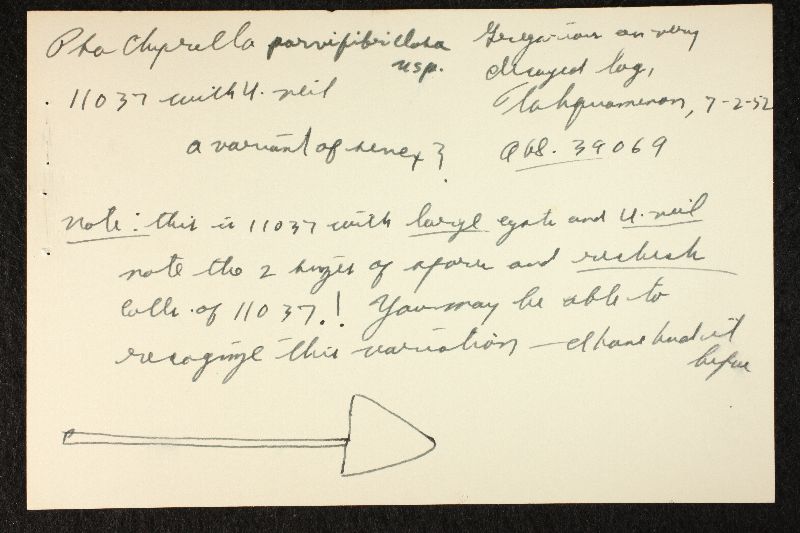 Psathyrella parvifibrillosa
nsp.
11037 with H. Neil
a variant of senex?
Gregarious on very
decayed log,
Tahquamenon, 7-2-52
AHS. 39069
note: this is 11037 with large cysts and H. neil
note the 2 sizes of spore and recheck
colls. of 11037.! You may be able to
recognize this variation — I have had it
before